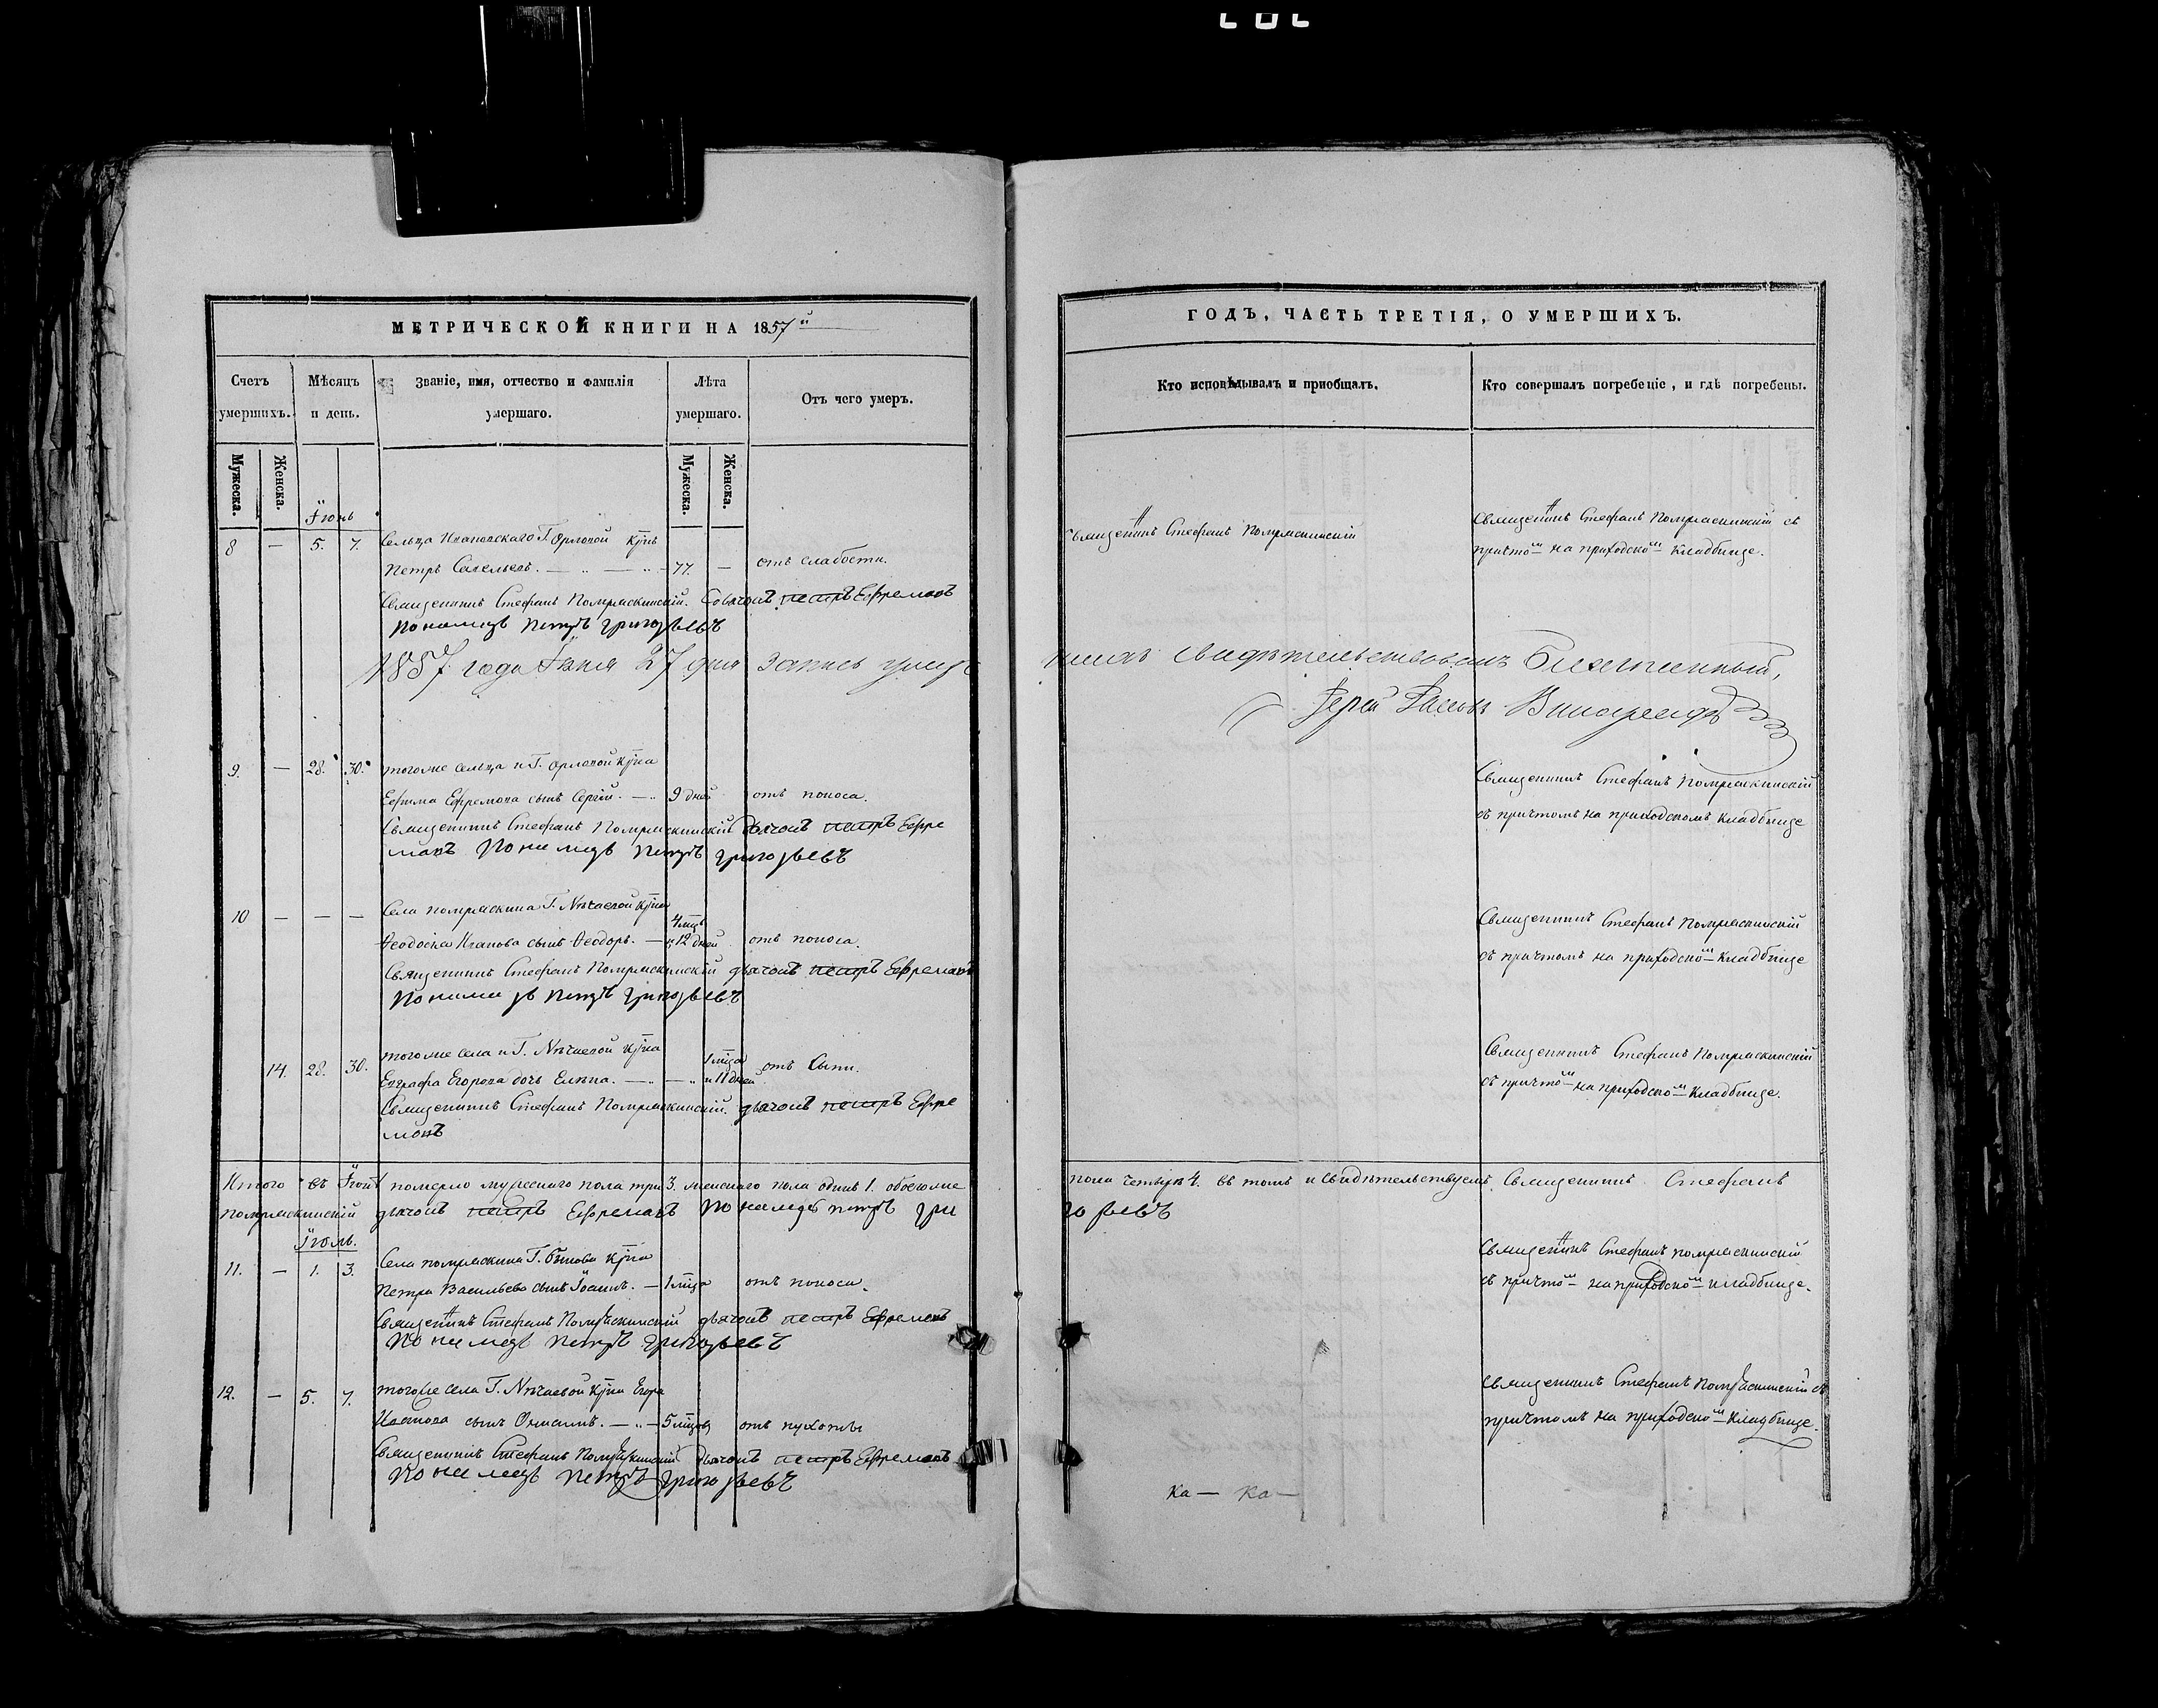 МЕТРИЧЕСКОЙ КНИГИ НА 1857й
Счетъ умершихъ.
Мѣсяцъ и день.
Званіе, имя, отчество и фамилія умершаго.
Лѣта умершаго.
Отъ чего умеръ.
Мужеска.
Женска.
Мужеска.
Женска.
Іюнь
8 — 5. 7. Сельца Ивановскаго Г. Орловой крнъ
Петръ Савельевъ. — 77. — отъ слабости.
Священникъ Стефанъ Помряскинскій. дьячокъ петръ Ефремовъ
Пономарь Петръ григорьевъ
1857 года Іюня 27 дня запись
9. — 28. 30. тогоже сельца и Г. Орловой крна
Ефима Ефремова сынъ Сергій. — 9 дней отъ поноса.
Священникъ Стефанъ Помряскинскій дьячокъ петръ Ефре
мовъ Пономарь Петръ григорьевъ
10 — — — Села помряскина Г. Нѣчаевой крна
Ѳеодосія Иванова сынъ Ѳеодоръ. — 4 мцъ и 12 дней отъ поноса.
Священникъ Стефанъ Помряскинскій дьячокъ петръ Ефремовъ
Пономарь Петръ григорьевъ
14. 28. 30. тогоже села и Г. Нѣчаевой крна
Евграфа Егорова дочь Елена. — 1 мца и 11 дней отъ Сыпи.
Священникъ Стефанъ Помряскинскій. дьячокъ петръ Ефре
мовъ
Итого въ Іюнѣ померло мужескаго пола три 3. женскаго пола одинъ 1. обоегоже
помряскинскій дьячокъ петръ Ефремовъ Пономарь петръ гри
Іюль.
11. — 1. 3. Села помряскина Г. крна
Петра Васильева сынъ Іоаннъ. — 1 мца отъ поноса.
Священникъ Стефанъ Помряскинскій дьячокъ петръ Ефремовъ
Пономарь Петръ григорьевъ
12. — 5. 7. тогоже села Г. Нѣчаевой крна Егора
Иванова сынъ — 5 мцовъ отъ
Священникъ Стефанъ Помряскинскій дьячокъ петръ Ефремовъ
Пономарь Петръ григорьевъ
ГОДЪ, ЧАСТЬ ТРЕТІЯ, О УМЕРШИХЪ.
Кто исповѣдывалъ и приобщалъ.
Кто совершалъ погребеніе, и гдѣ погребены.
Священникъ Стефанъ Помряскинскій
Священникъ Стефанъ Помряскинскій съ
причтомъ на приходскомъ кладбище.
свидѣтельствовалъ Благочинный,
Іерей Виноградовъ
Священникъ Стефанъ Помряскинскій
съ причтомъ на приходскомъ кладбище
Священникъ Стефанъ Помряскинскій
съ причтомъ на приходскомъ кладбище
Священникъ Стефанъ Помряскинскій
съ причтомъ на приходскомъ кладбище.
пола четыре 4. въ томъ и свидѣтельствуемъ. Священникъ Стефанъ
горьевъ
Священникъ Стефанъ помряскинскій
съ причтомъ на приходскомъ кладбище.
Священникъ Стефанъ Помряскинскій съ
причтомъ на приходскомъ кладбище.
Ка — Ка —